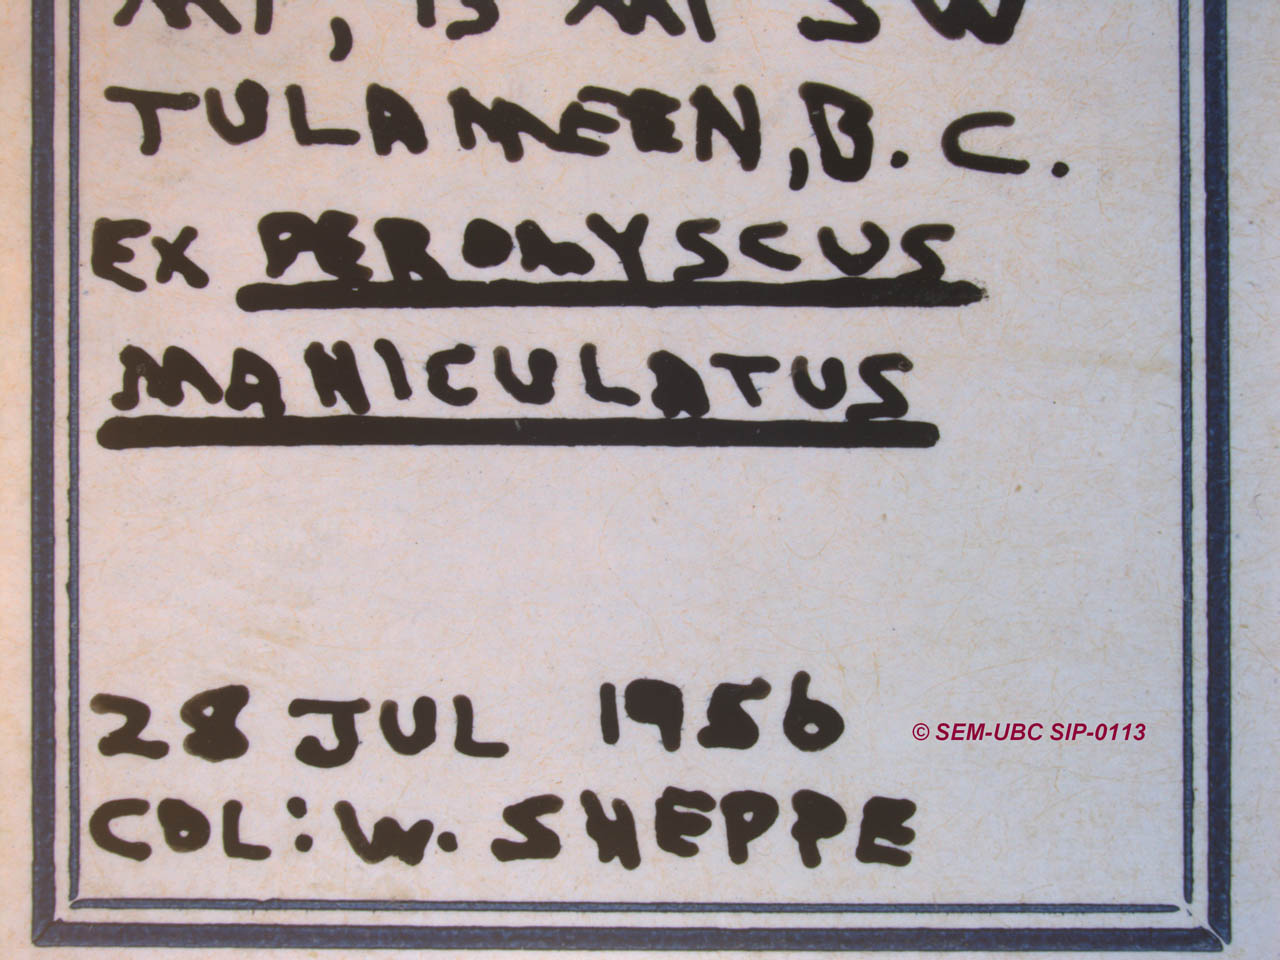 MI SW
TULAMEEN, B. C.
EX PEROMYSCUS
MANICULATUS
28 JUL 1956
© SEM-UBC SIP-0113
COL: W. SHEPPE